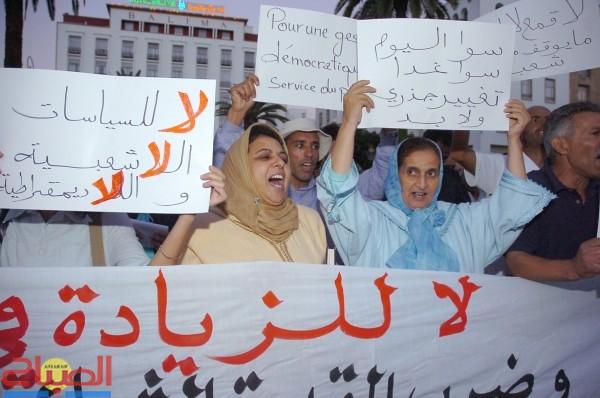 BALIMA
لا للسياسات
اللاشعبية
و اللاديمقراطية
Pour une ges
démocratiqu
Service du p
سوا اليوم
سوا غدا
تغيير جذري
ولا بد
لا قمع لا
ما يوقف
شعب
لا للزيادة و
وضرب القد
الصباح
ASSABAH